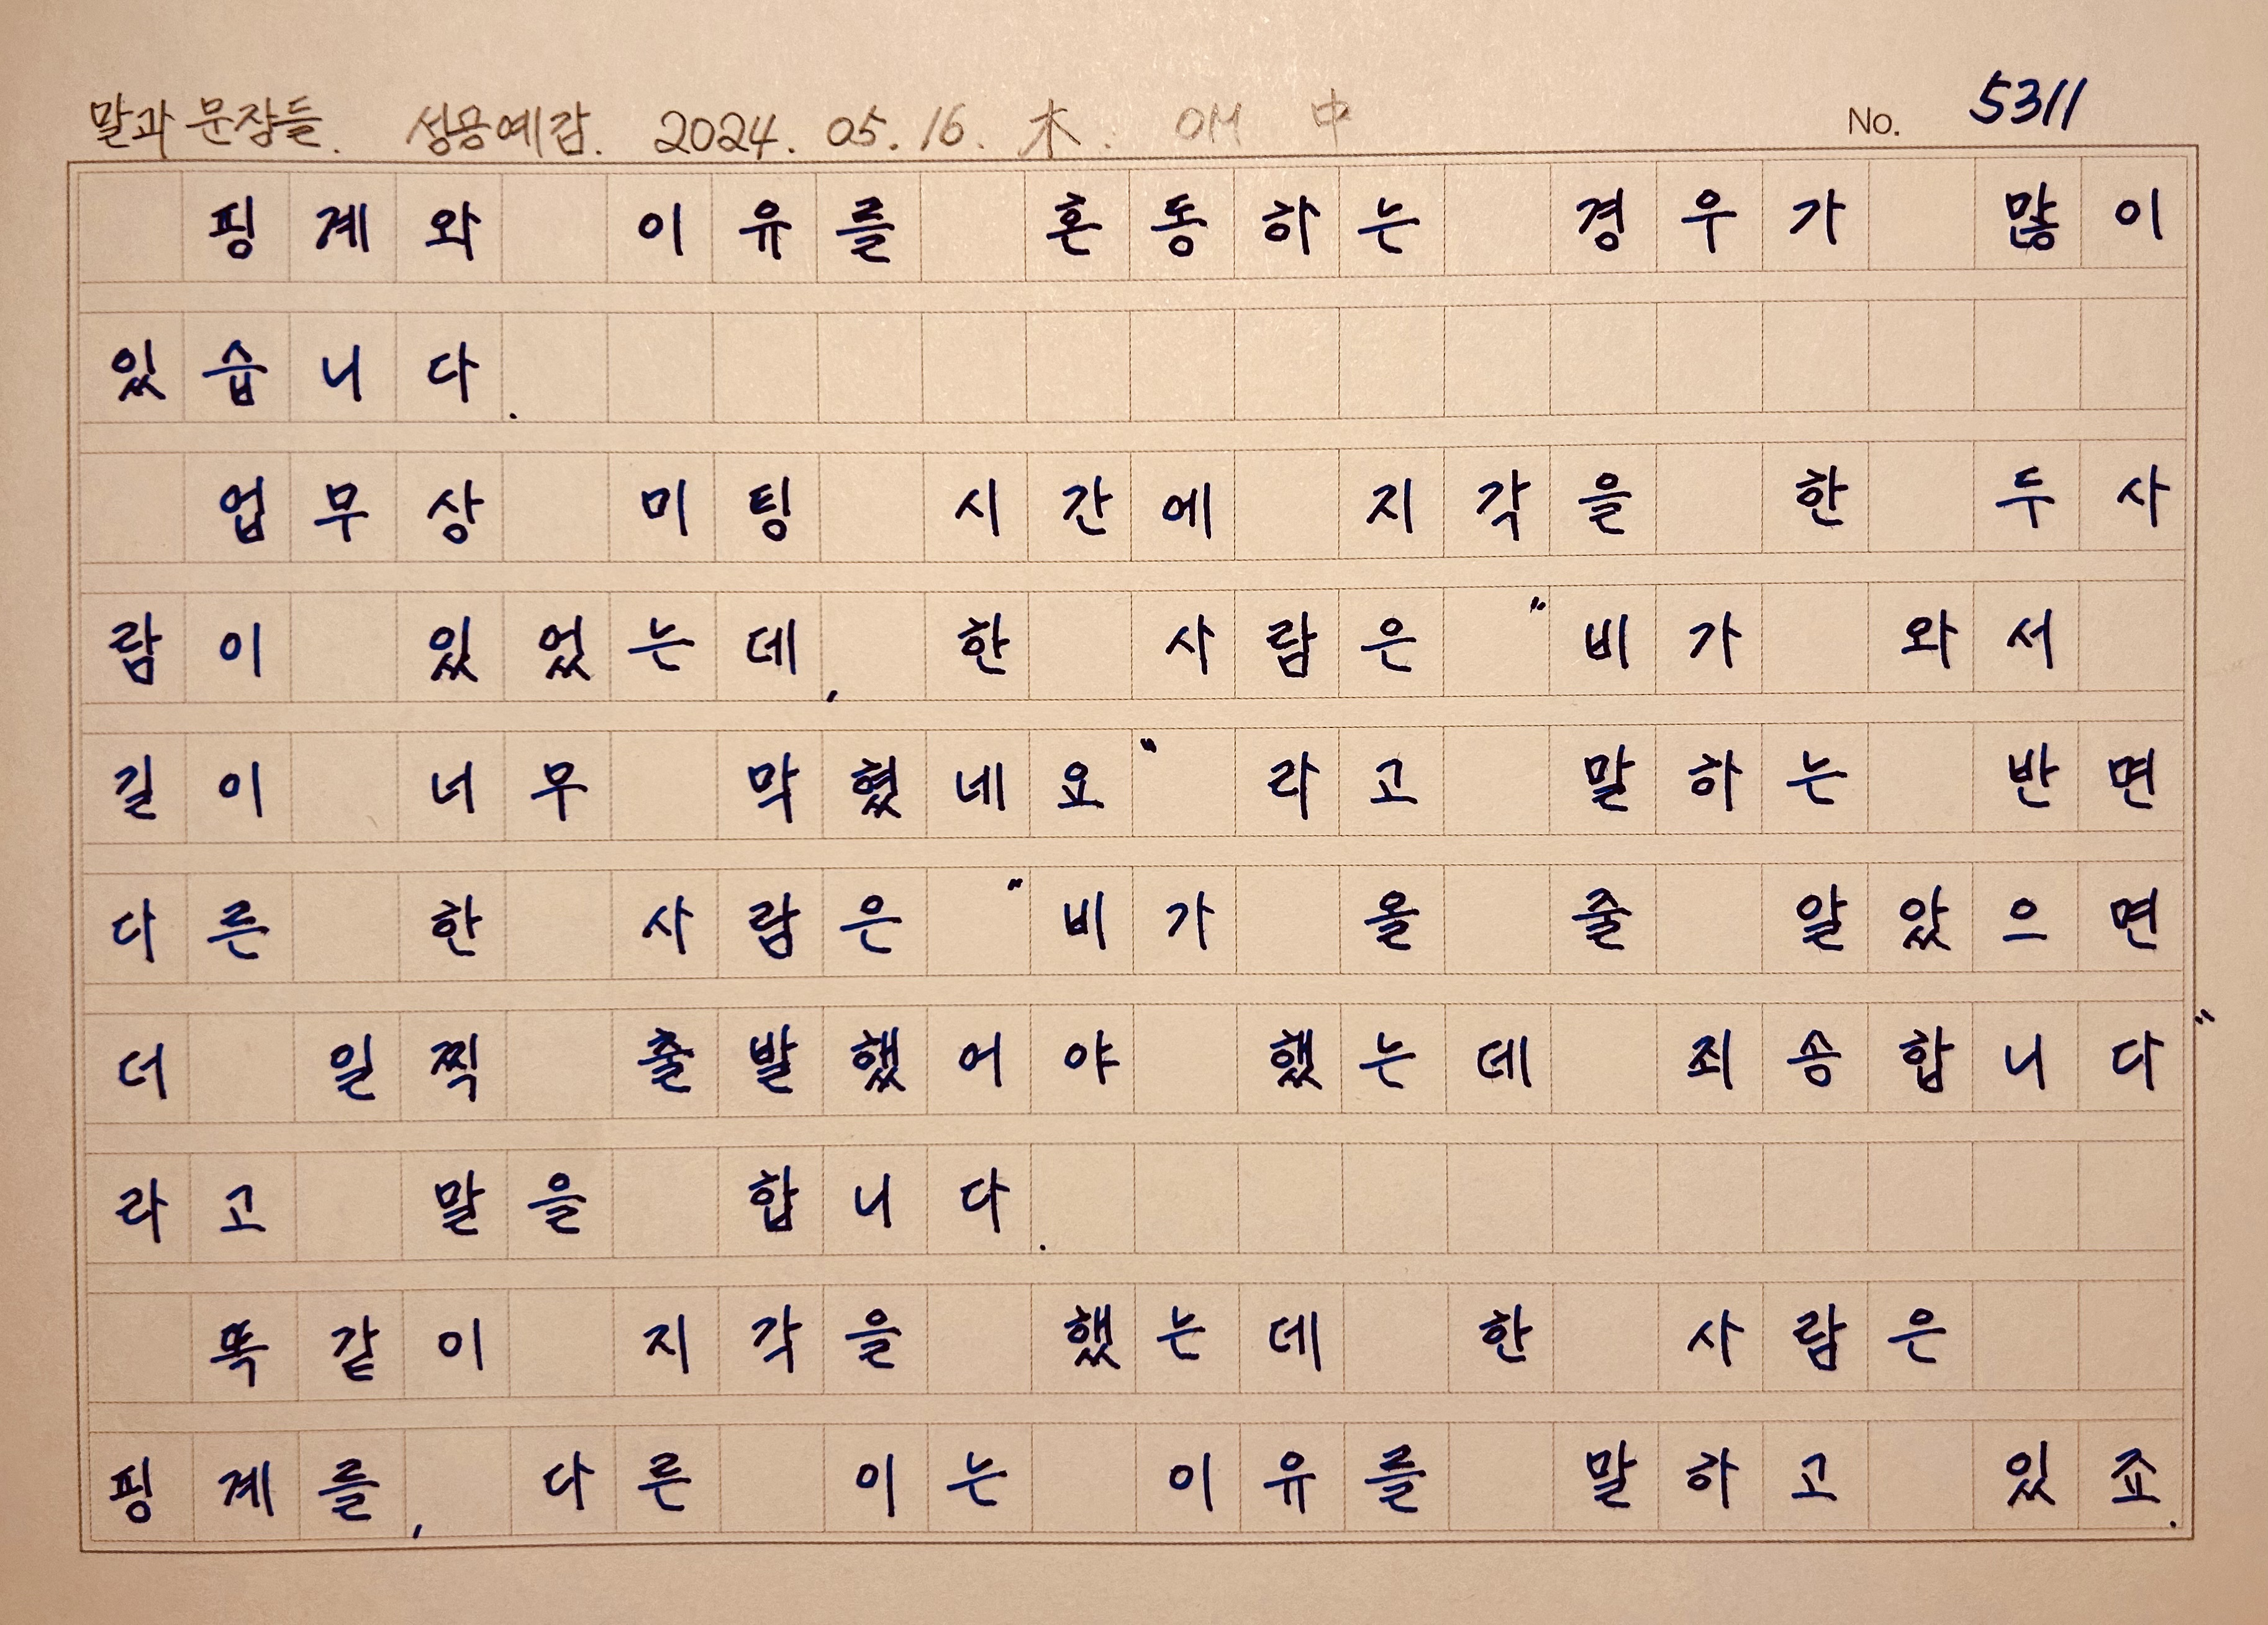 말과 문장들. 성공예감. 2024. 05. 16. 木. OM 中 No. 5311
핑계와 이유를 혼동하는 경우가 많이
있습니다.
업무상 미팅 시간에 지각을 한 두사
람이 있었는데, 한 사람은 "비가 와서
길이 너무 막혔네요" 라고 말하는 반면
다른 한 사람은 "비가 올 줄 알았으면
더 일찍 출발했어야 했는데 죄송합니다"
라고 말을 합니다.
똑같이 지각을 했는데 한 사람은
핑계를, 다른 이는 이유를 말하고 있죠.